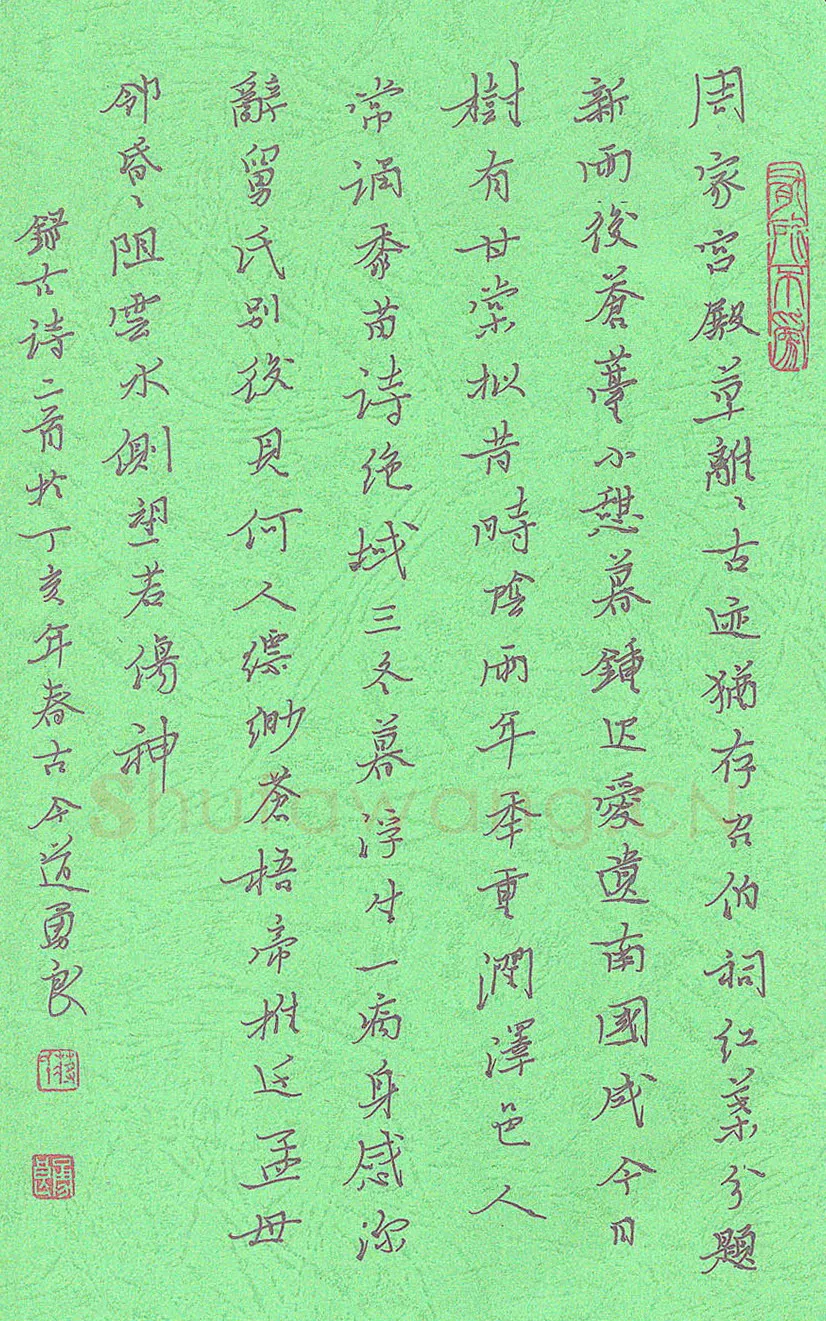 周家宫殿草離〻古迹猶存召伯祠红葉分題
新雨後蒼臺小憩暮鍾迟愛遺南國咸今日
樹有甘棠拟昔時陰雨年年重潤澤邑人
常诵黍苗诗绝域三冬暮浮生一病身感深
辭舅氏别後見何人缥缈蒼梧帝推迁孟母
邻昏〻阻雲水侧望若傷神
録古诗二首於丁亥年春古今道勇良
Shufawang.CN